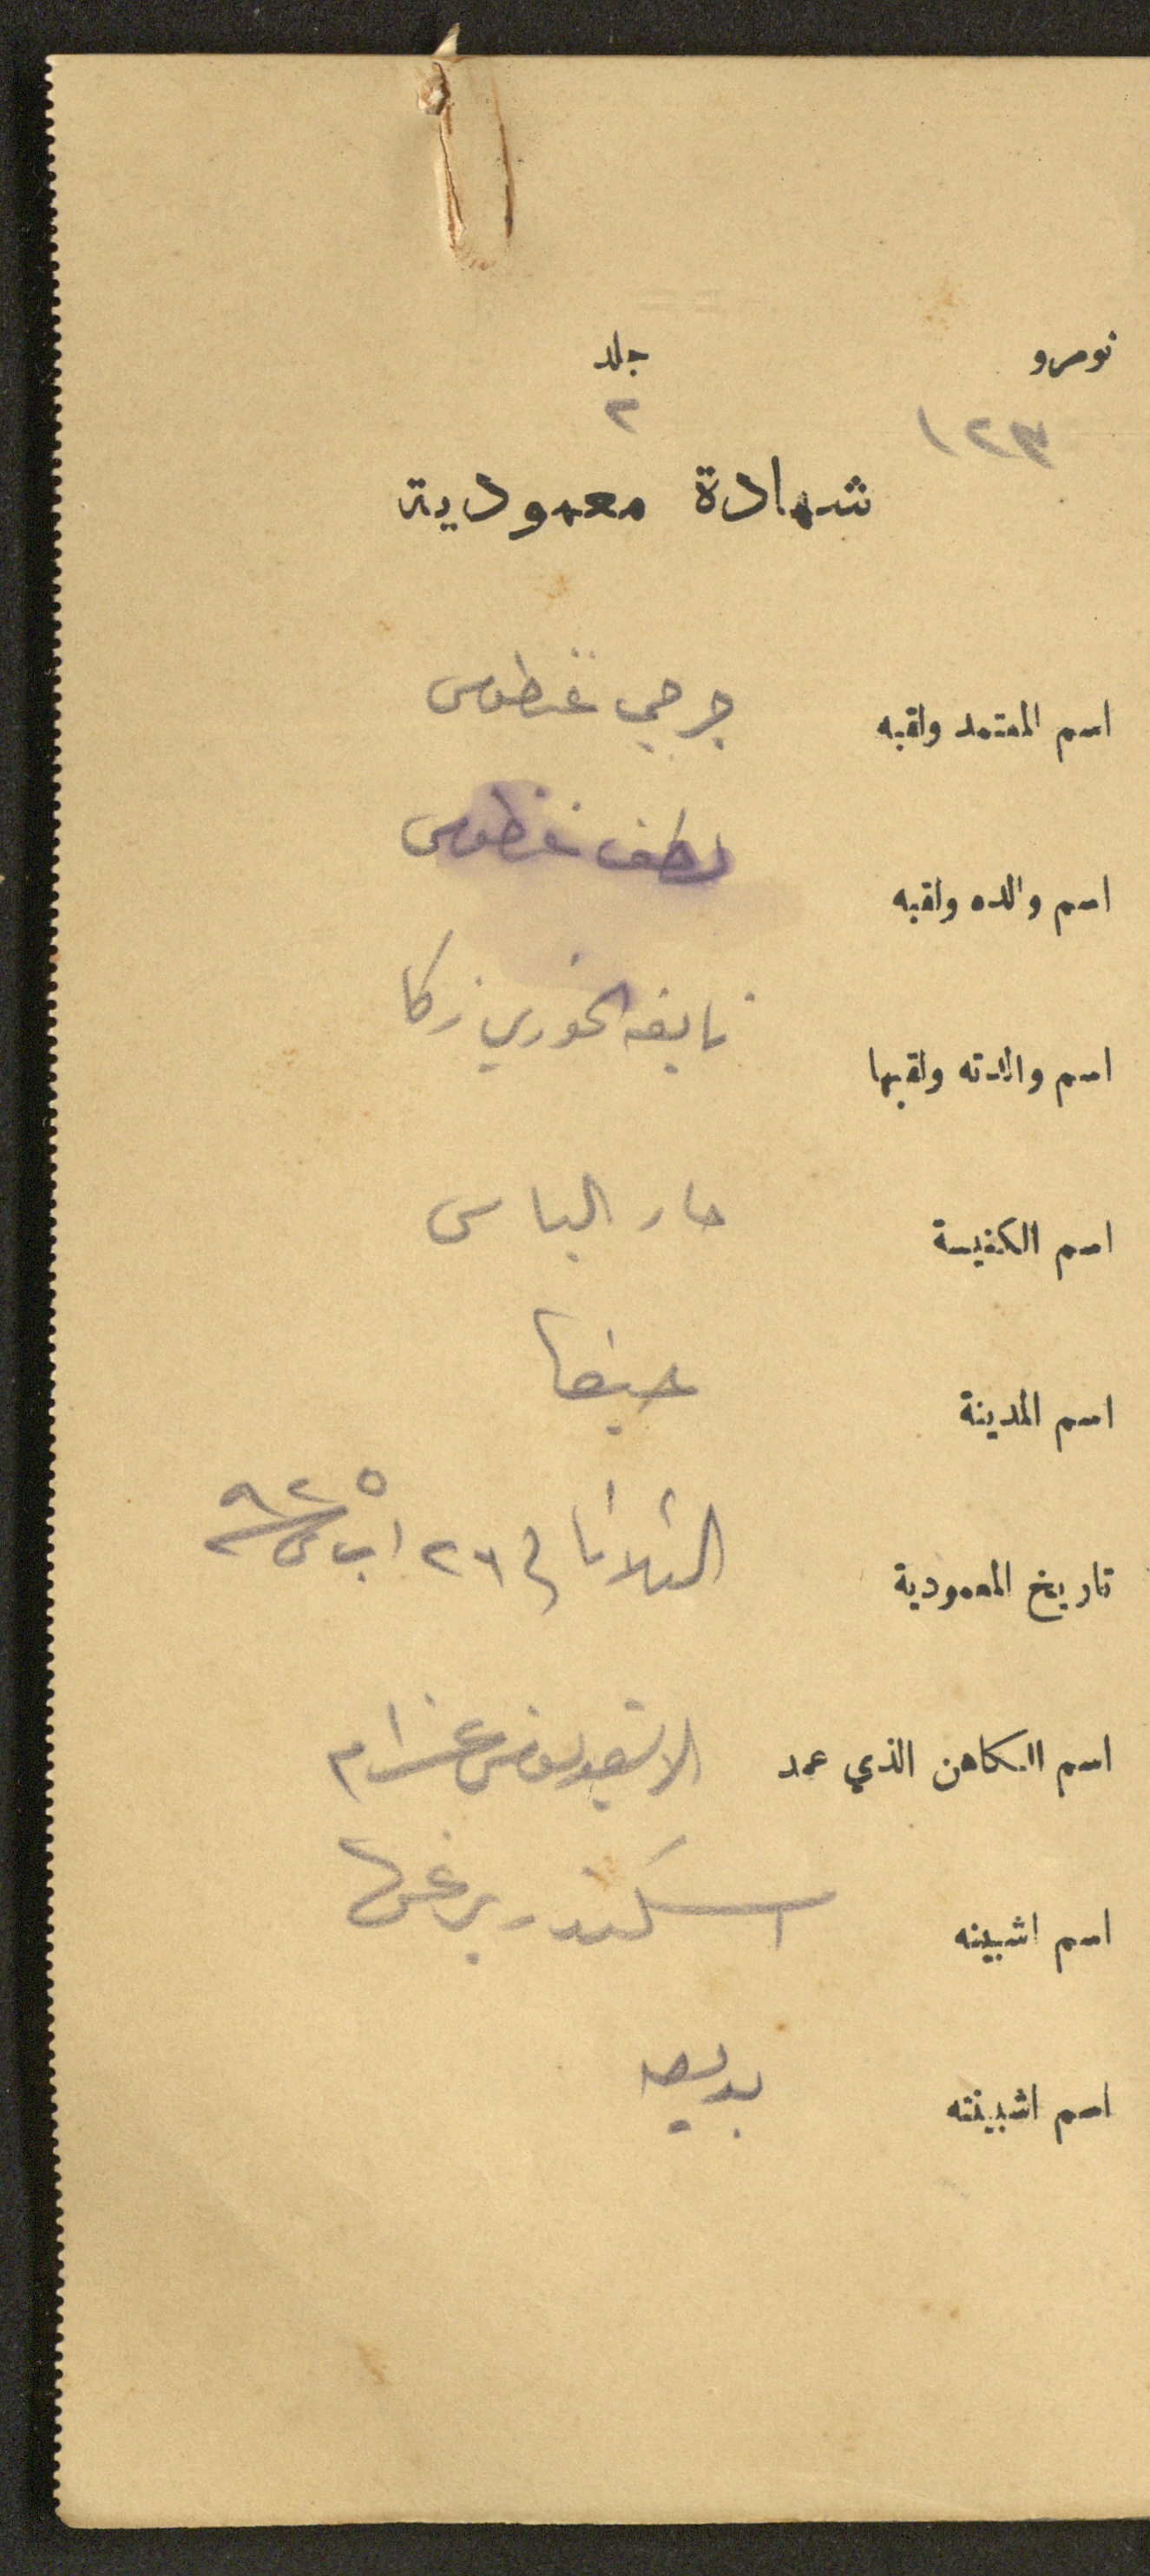 نومرو جلد
١٢٣ ٢
شهادة معمودية
اسم المعتمد ولقبه جرجي غنطوس
اسم والده ولقبه لطف غنطوس
اسم والدته ولقبها نايفه الخوري زكا
اسم الكنيسة مار الياس
اسم المدينة حيفا
تاريخ المعمودية الثلاثا في ٢٦ اب سنة ٩٢٥
اسم الكاهن الذي عمد
اسم اشبينه اسكندر
اسم اشبينته بديعه